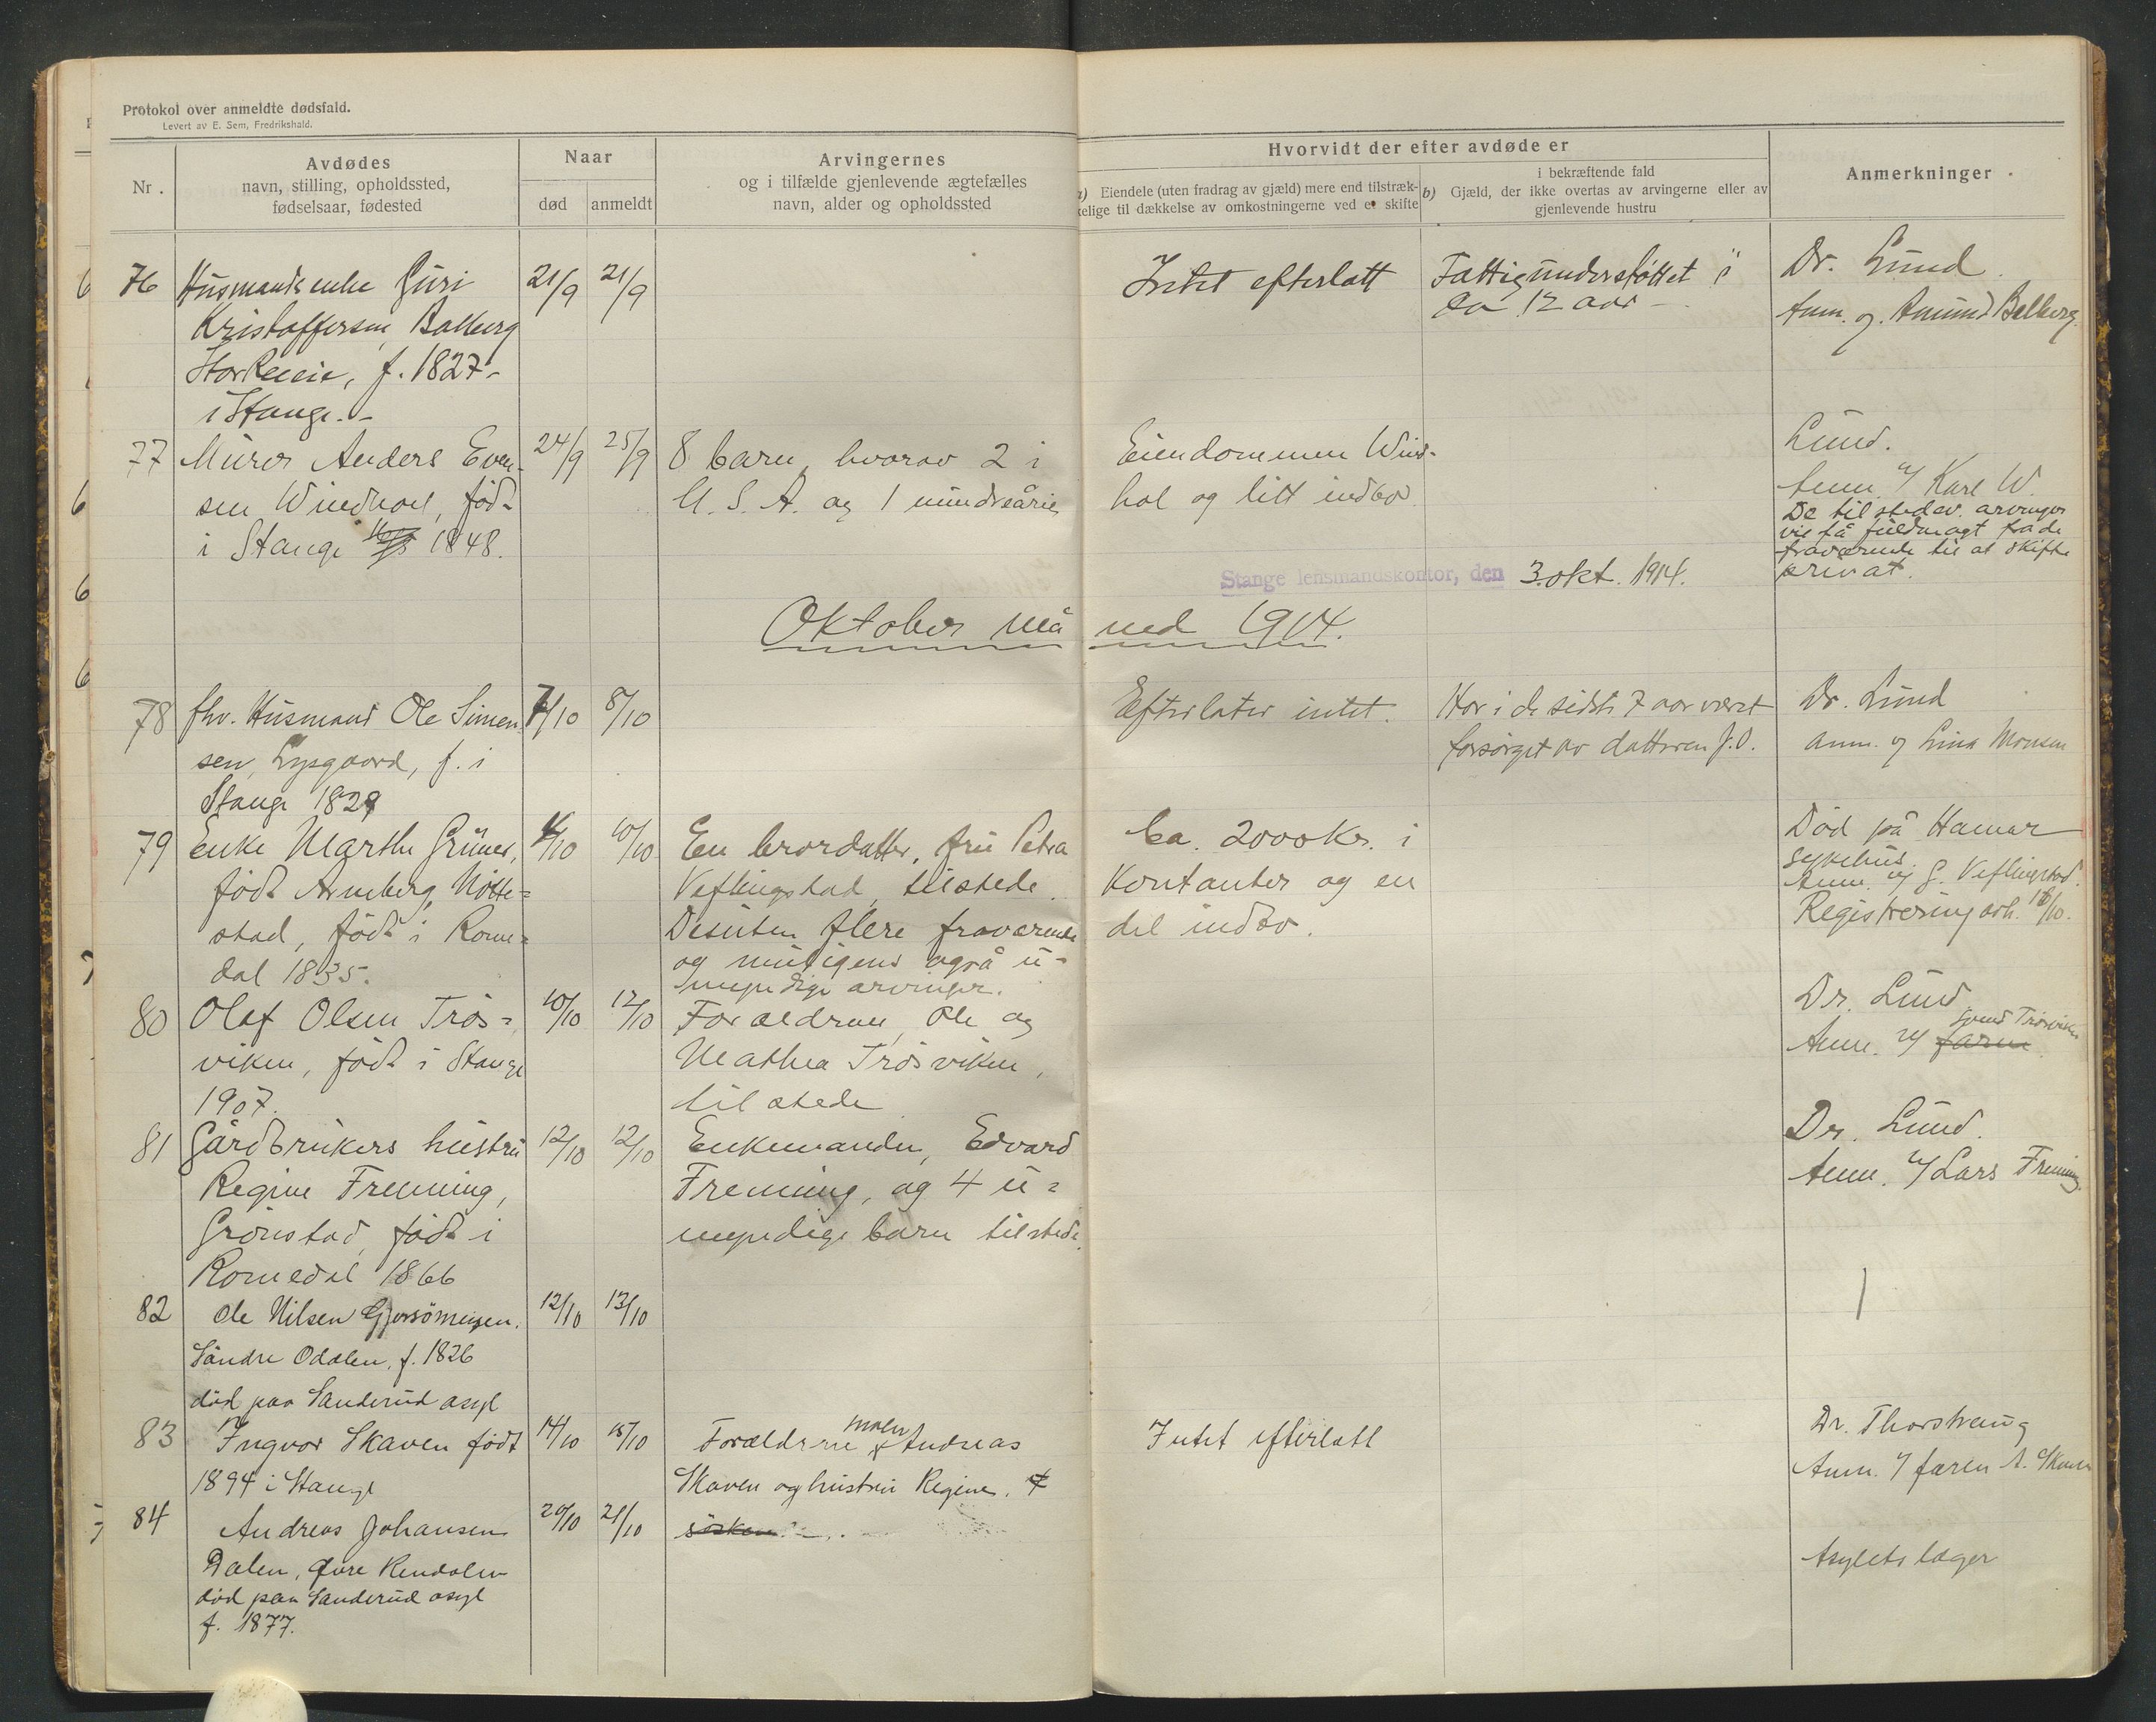 Protokol over anmeldte dødsfald.
Levert av E. Sem, Fredrikshald.
Nr.
Avdødes
navn, stilling, opholdssted,
fødselsaar, fødested
Naar
død
anmeldt
Arvingernes
og i tilfælde gjenlevende ægtefælles
navn, alder og opholdssted
Hvorvidt der efter avdøde er
a) Eiendele (uten fradrag av gjæld) mere end tilstræk-
kelige til dækkelse av omkostningerne ved et skifte
i bekræftende fald
b) Gjæld, der ikke overtas av arvingerne eller av
gjenlevende hustru
Anmerkninger
76
Husmands enke Guri
Kristoffersen Balberg
f. 1827-
i Stange.-
21/9
21/9
Intet efterlatt
Fattigunderstøttet i
ca 12 aar -
Dr. Lund
Anm. Amund Balberg.
77
Murer Anders Even-
sen Windhol, född
i Stange 1848.
24/9
25/9
8 barn, hvorav 2 i
U. S. A. og 1 mindreårig
Eiendommen Wind-
hol og litt indbo
Lund.
Anm. v/ Karl W.
De tilstedev. arvinger
vil få fuldmagt fra de
fraværende til at skifte
privat.
Stange lensmandskontor, den 3. okt. 1914.
Oktober måned 1914.
78
fhv. Husmand Ole Simen
sen, Lysgaard, f. i
Stange
7/10
8/10
Efterlater intet.
Har i de sidste 7 aar været
forsørget av datteren J.O.
Dr. Lund
anm. v/ Lina Monsen
79
Enke Marthe Grüner,
födt Arneberg, Nötte=
stad, födt i Rome=
dal 1835.
/10
10/10
En brordatter, fru Petra
Veflingstad, tilstede.
Desuten flere fraværende
og muligens også u=
myndige arvinger.
Ca. 2000 Kr. i
Kontanter og en
del indbo.
Död på Hamar
sykehus.
Anm. v/ G. Veflingstad.
Registrering avh. 18/10.
80
Olaf Olsen Trös=
viken, födt i Stange
1907.
10/10
12/10
Forældrene, Ole og
Mathea Trösviken,
tilstede
Dr. Lund
Trösviken
Anm. v/ faren
81
Gårdbrukers hustru
Regine Frenning,
Grönstad, födt i
Romedal 1866
12/10
12/10
Enkemanden, Edvard
Frenning, og 4 u=
myndige barn tilstede.
Dr. Lund.
Anm. v/ Lars Frenning.
82
Ole Nilsen
Söndre Odalen, f. 1826
död paa Sanderud asyl
12/10
13/10
83
Ingvar Skaven födt
1894 i Stange
14/10
15/10
maler
Forældrene Andreas
Skaven og hustru Regine.
søsken
Intet efterlatt
Dr. Thorstveng
Anm. v/ faren A. Skaven
84
Andreas Johansen
Dalen, Øvre Rendalen
död paa Sanderud asyl
f. 1877.
20/10
21/10
Asylets læger